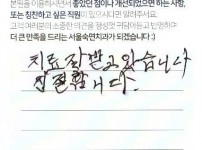 본원을 이용하시면서 좋았던 점이나 개선되었으면 하는 사항,
또는 칭찬하고 싶은 직원이 있으시다면 알려주세요.
고객 여러분의 소중한 의견을 정성껏 귀담아듣고 반영하여
더 큰 만족을 드리는 서울숙면치과가 되겠습니다 :)
치료 잘 받고 있습니다
친절합니다.